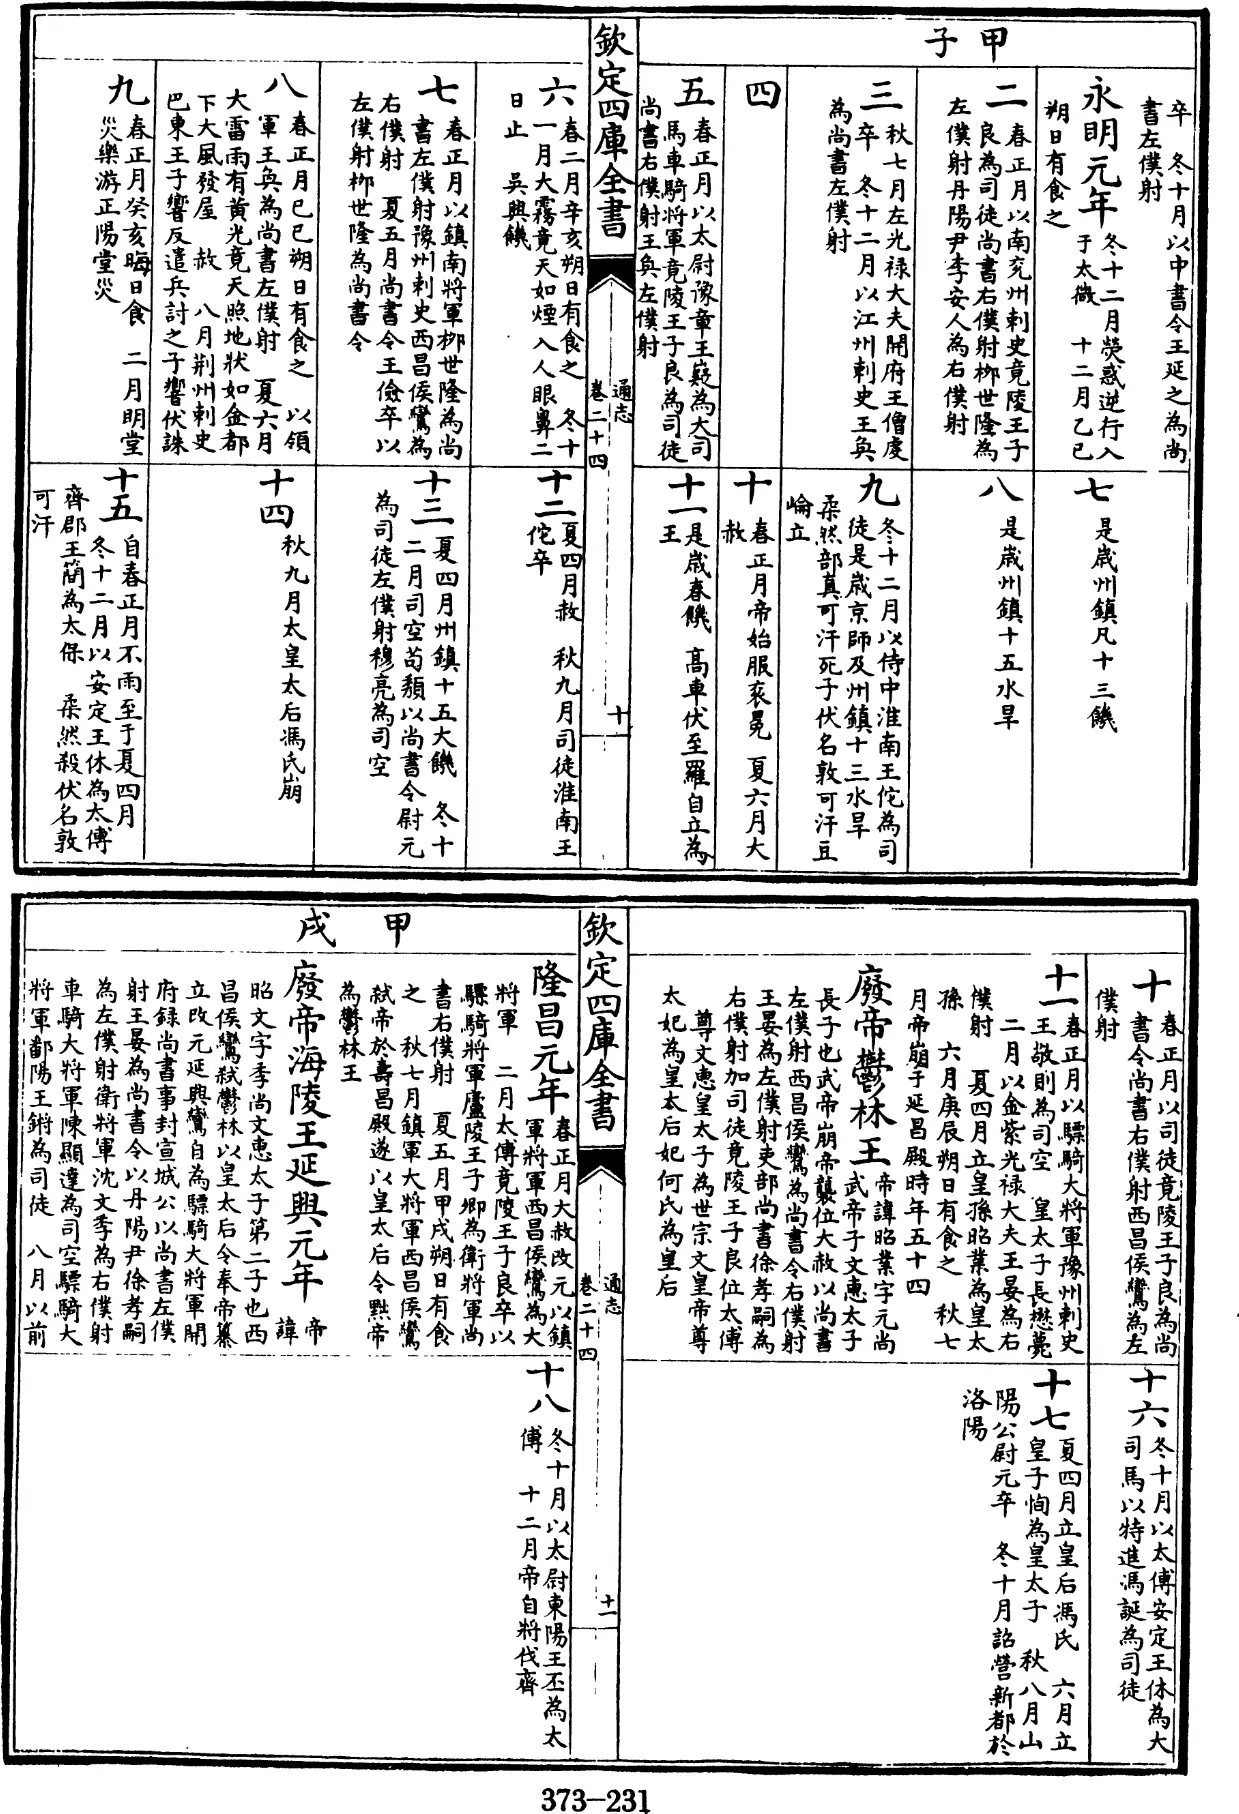 甲子
卒　冬十月以中書令王延之為尚
書左僕射
永明元年
冬十二月熒惑逆行入
于太微　十二月乙巳
朔日有食之
二
春正月以南兖州刺史竟陵王子
良為司徒尚書右僕射柳世隆為
左僕射丹陽尹李安人為右僕射
三
秋七月左光禄大夫開府王僧虔
卒　冬十二月以江州刺史王奐
為尚書左僕射
四
五
春正月以太尉豫章王嶷為大司
馬車騎將軍竟陵王子良為司徒
尚書右僕射王奐左僕射
七
是嵗州鎮凡十三饑
八
是嵗州鎮十五水旱
九
冬十二月以侍中淮南王佗為司
徒是嵗京師及州鎮十三水旱
柔然部真可汗死子伏名敦可汗豆
崘立
十
春正月帝始服衮冕　夏六月大
赦
十一
是嵗春饑　高車伏至羅自立為
王
欽定四庫全書
通志
卷二十四
十
六
春二月辛亥朔日有食之　冬十
一月大霧竟天如煙入人眼鼻二
日止　吳興饑
七
春正月以鎮南將軍柳世隆為尚
書左僕射豫州刺史西昌侯鸞為
右僕射　夏五月尚書令王儉卒以
左僕射栁世隆為尚書令
八
春正月己巳朔日有食之　以領
軍王奐為尚書左僕射　夏六月
大雷雨有黄光竟天照地狀如金都
下大風發屋　赦　八月荆州刺史
巴東王子響反遣兵討之子響伏誅
九
春正月癸亥晦日食　二月明堂
災樂游正陽堂災
十二
夏四月赦　秋九月司徒淮南王
佗卒
十三
夏四月州鎮十五大饑　冬十
二月司空茍頽以尚書令尉元
為司徒左僕射穆亮為司空
十四
秋九月太皇太后馮氏崩
十五
自春正月不雨至于夏四月
冬十二月以安定王休為太傅
齊郡王簡為太保　柔然殺伏名敦
可汗
十
春正月以司徒竟陵王子良為尚
書令尚書右僕射西昌侯鸞為左
僕射
十一
春正月以驃騎大將軍豫州刺史
王敬則為司空　皇太子長懋薨
二月以金紫光禄大夫王晏為右
僕射　夏四月立皇孫昭業為皇太
孫　六月庚辰朔日有食之　秋七
月帝崩于延昌殿時年五十四
廢帝鬱林王
帝諱昭業字元尚
武帝子文惠太子
長子也武帝崩帝襲位大赦以尚書
左僕射西昌侯鸞為尚書令右僕射
王晏為左僕射吏部尚書徐孝嗣為
右僕射加司徒竟陵王子良位太傅
尊文惠皇太子為世宗文皇帝尊
太妃為皇太后妃何氏為皇后
十六
冬十月以太傅安定王休為大
司馬以特進馮誕為司徒
十七
夏四月立皇后馮氏　六月立
皇子恂為皇太子　秋八月山
陽公尉元卒　冬十月詔營新都於
洛陽
欽定四庫全書
通志
卷二十四
十一
甲戌
隆昌元年
春正月大赦改元以鎮
軍將軍西昌侯鸞為大
將軍　二月太傅竟陵王子良卒以
驃騎將軍廬陵王子卿為衛將軍尚
書右僕射　夏五月甲戌朔日有食
之　秋七月鎮軍大將軍西昌侯鸞
弑帝於壽昌殿遂以皇太后令黜帝
為鬱林王
廢帝海陵王延興元年
帝
諱
昭文字季尚文惠太子第二子也西
昌侯鸞弑鬱林以皇太后令奉帝纂
立改元延興鸞自為驃騎大將軍開
府録尚書事封宣城公以尚書左僕
射王晏為尚書令以丹陽尹徐孝嗣
為左僕射衛將軍沈文季為右僕射
車騎大將軍陳顯達為司空驃騎大
將軍鄱陽王鏘為司徒　八月以前
十八
冬十月以太尉東陽王丕為太
傅　十二月帝自將伐齊
373-231